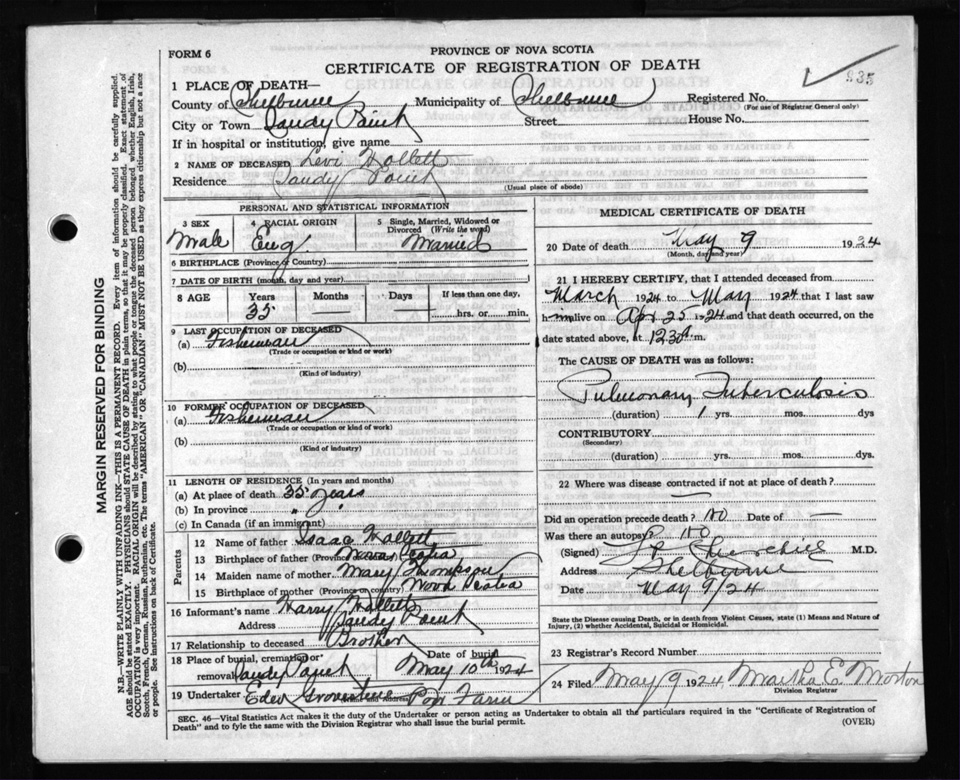 FORM 6
PROVINCE OF NOVA SCOTIA
CERTIFICATE OF REGISTRATION OF DEATH
935
1 PLACE OF DEATH—
County of Shelburne Municipality of Shelburne Registered No.
(For use of Registrar General only)
City or Town Sandy Point Street House No.
If in hospital or institution, give name
2 NAME OF DECEASED Levi Hallett
Residence Sandy Point
(Usual place of abode)
PERSONAL AND STATISTICAL INFORMATION
3 SEX 4 RACIAL ORIGIN 5 Single, Married, Widowed or Divorced (Write the word)
Male Eng Married
6 BIRTHPLACE (Province or Country)
7 DATE OF BIRTH (month, day and year)
8 AGE Years Months Days If less than one day,
35 — — hrs. or min.
9 LAST OCCUPATION OF DECEASED
(a) Fisherman
(Trade or occupation or kind of work)
(b)
(Kind of industry)
10 FORMER OCCUPATION OF DECEASED
(a) Fisherman
(Trade or occupation or kind of work)
(b)
(Kind of industry)
11 LENGTH OF RESIDENCE (In years and months)
(a) At place of death 35 years
(b) In province " "
(c) In Canada (if an immigrant)
Parents
12 Name of father Isaac Hallett
13 Birthplace of father (Province or country) Nova Scotia
14 Maiden name of mother Mary Thompson
15 Birthplace of mother (Province or country) Nova Scotia
16 Informant's name Harry Hallett
Address Sandy Point
17 Relationship to deceased Brother
18 Place of burial, cremation or removal Sandy Point Date of burial May 10th 1924
19 Undertaker
(Name and Address)
MEDICAL CERTIFICATE OF DEATH
20 Date of death May 9 1924
(Month, day and year)
21 I HEREBY CERTIFY, that I attended deceased from
March 1924 to May 1924 that I last saw
him alive on Apr 25 1924 and that death occurred, on
date stated above, at 12.30 a m.
The CAUSE OF DEATH was as follows:
Pulmonary Tuberculosis
(duration) 1 yrs. mos. dys
CONTRIBUTORY
(Secondary)
(duration) yrs. mos. dys.
22 Where was disease contracted if not at place of death?
—
Did an operation precede death? no Date of —
Was there an autopsy? no
(Signed) Churchill M.D.
Address Shelburne
Date May 9/24
State the Disease causing Death, or in death from Violent Causes, state (1) Means and Nature of
Injury, (2) whether Accidental, Suicidal or Homicidal.
23 Registrar's Record Number
24 Filed May 9 1924 Martha E. Morton
Division Registrar
SEC. 46—Vital Statistics Act makes it the duty of the Undertaker or person acting as Undertaker to obtain all the particulars required in the "Certificate of Registration of
Death" and to fyle the same with the Division Registrar who shall issue the burial permit.
(OVER)
MARGIN RESERVED FOR BINDING
N.B.—WRITE PLAINLY WITH UNFADING INK—THIS IS A PERMANENT RECORD. Every item of information should be carefully supplied.
AGE should be stated EXACTLY. PHYSICIANS should STATE CAUSE OF DEATH in plain terms, so that it may be properly classified. Exact statement of
OCCUPATION is very important. RACIAL ORIGIN will be described by stating to what people or tongue the deceased person belonged, whether English, Irish,
Scotch, French, German, Russian, Ruthenian, etc. The terms "AMERICAN" OR "CANADIAN" MUST NOT BE USED as they express citizenship but not a race
or people. See Instructions on back of Certificate.